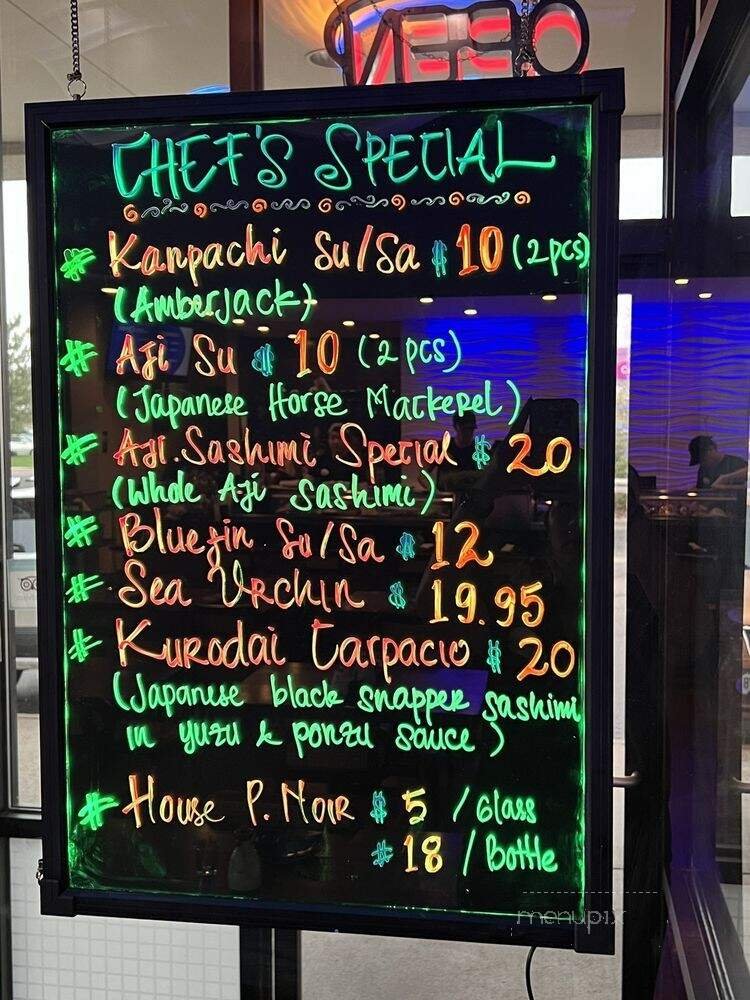 OPEN
CHEF'S SPECIAL
# Kanpachi Su/Sa $10 (2pcs)
(Amberjack)
# Aji Su $10 (2 pcs)
(Japanese Horse Mackerel)
# Aji. Sashimi Special $20
(Whole Aji Sashimi)
# Bluefin Su/Sa $12
# Sea Urchin $19.95
# Kurodai Carpacio $20
(Japanese black snapper sashimi
in yuzu & ponzu sauce)
# House P. Noir $5 / Glass
$18 / Bottle
menupix